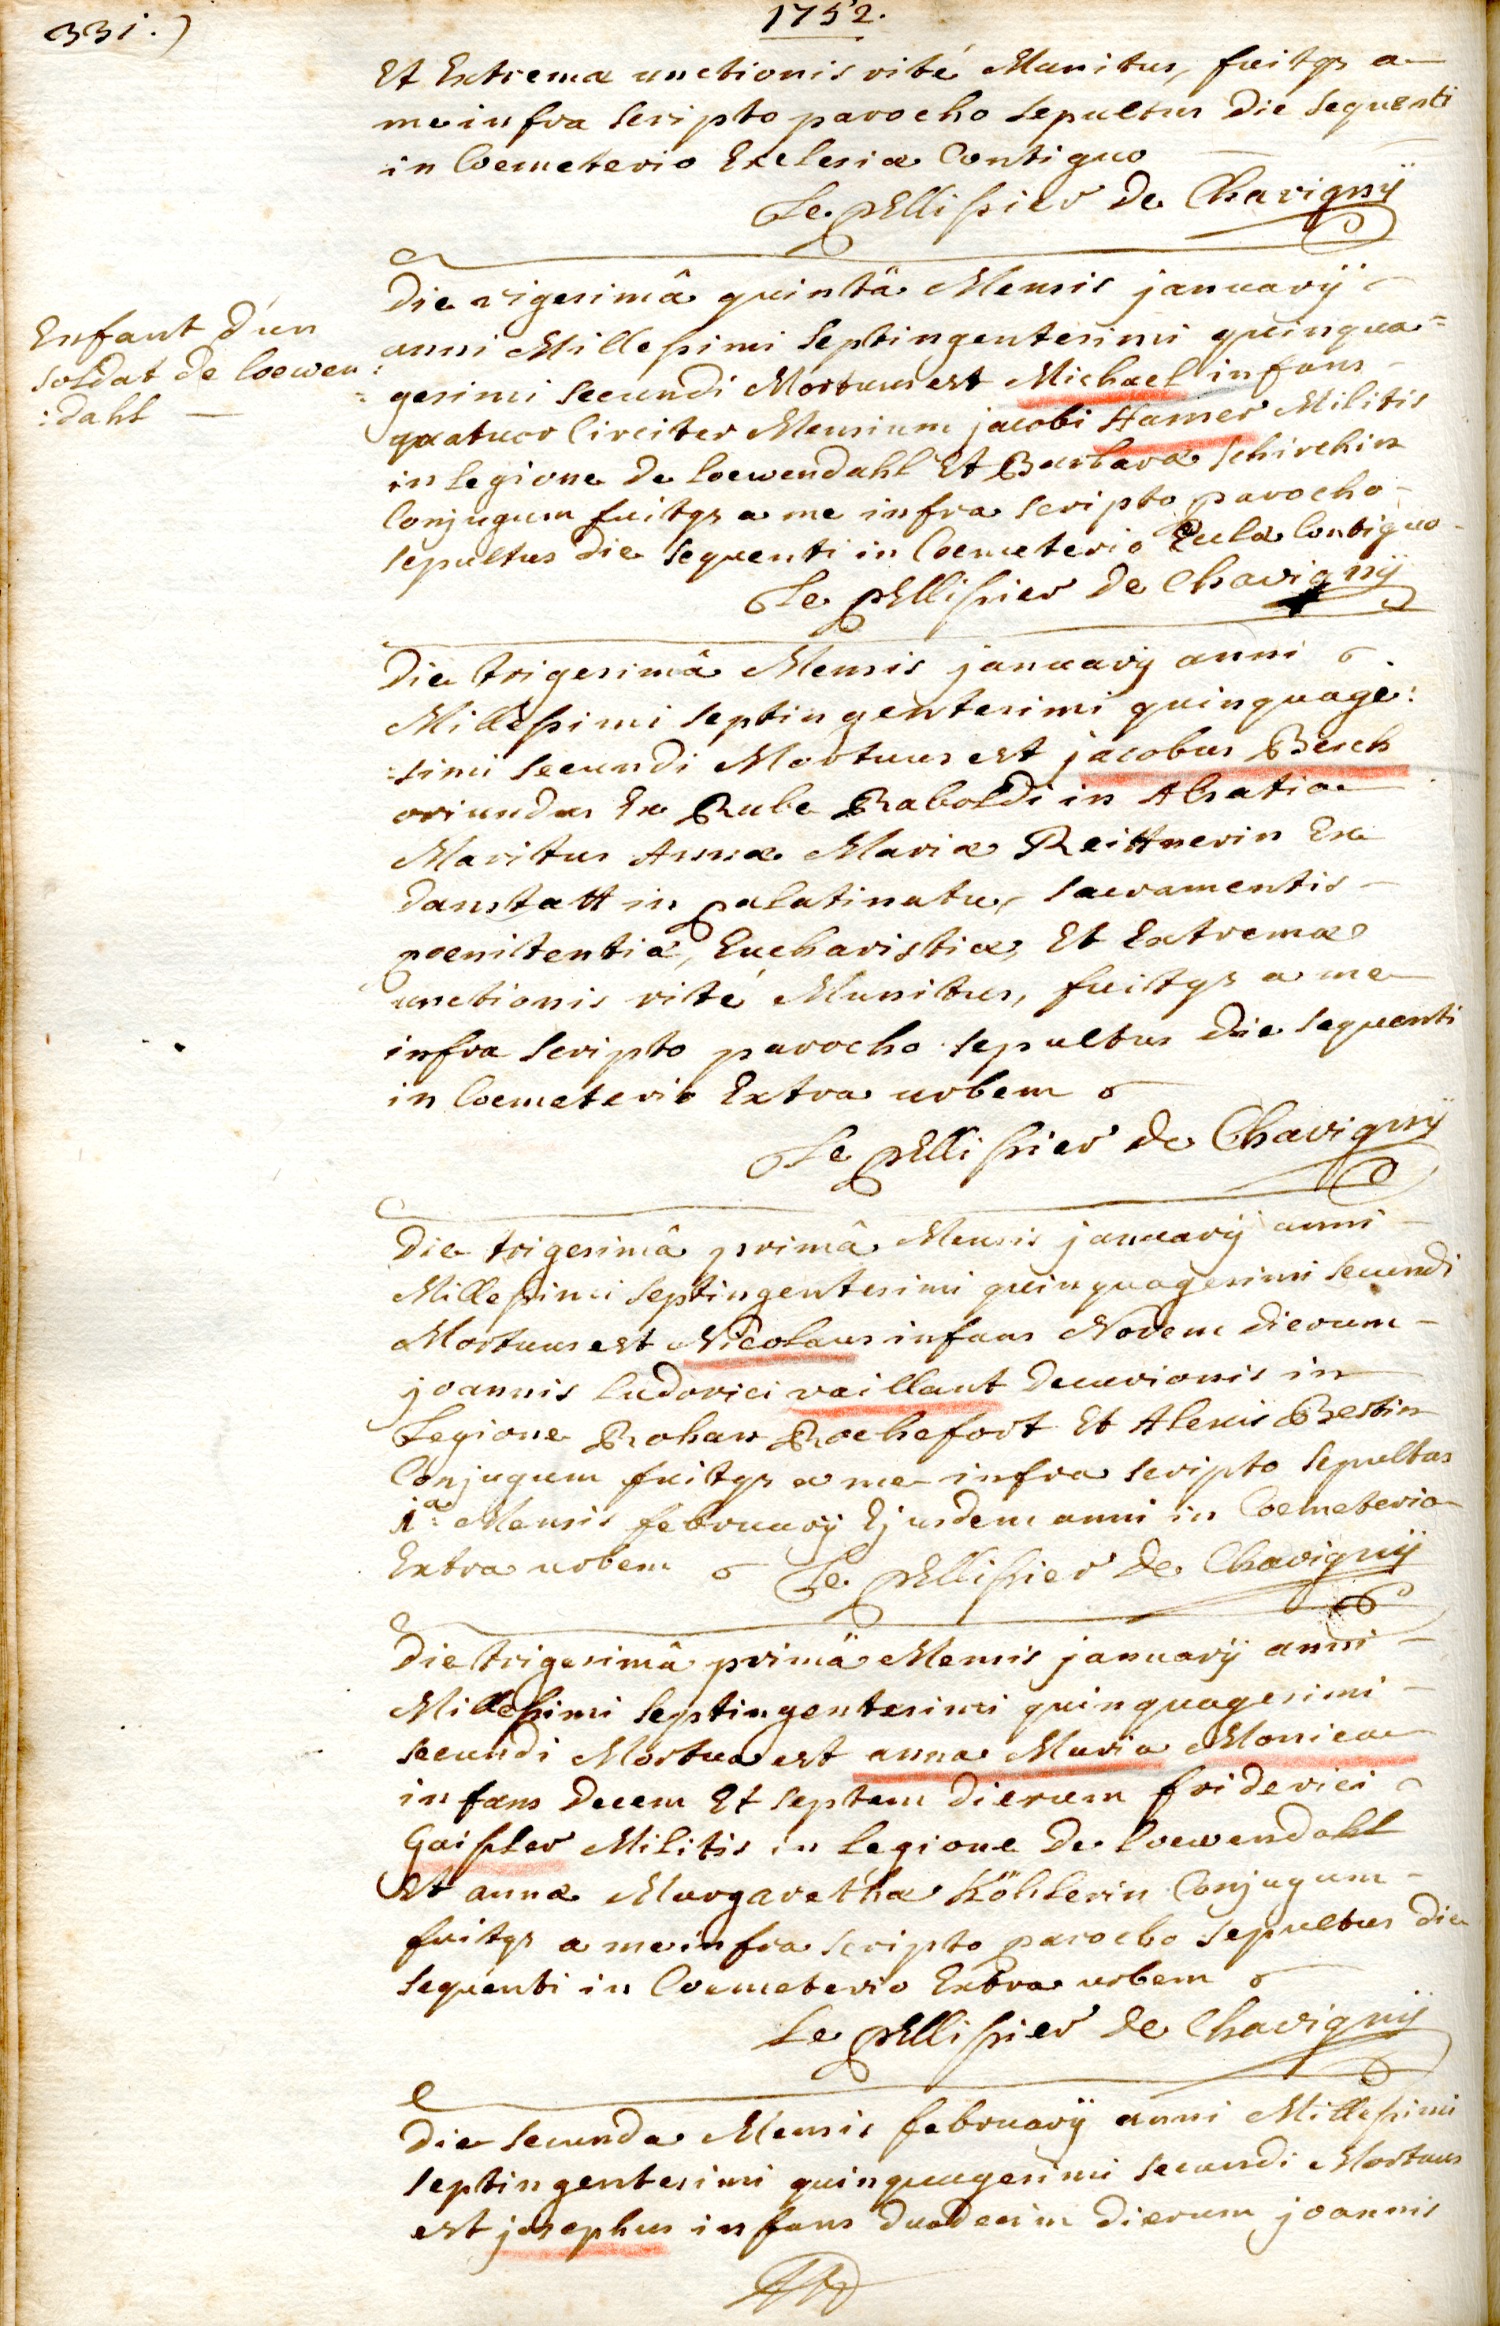 331.)
1752.
Et Extremæ unctionis rité Munitus, fuitqȝ a
me infra scripto parocho sepultus die sequenti
in Coemeterio Ecclesiæ Contiguo
Le pEllissier de Chavignÿ
Enfant d'un
soldat de Loewen
:dahl —
Die vigesimâ quintâ Mensis januarÿ
anni Millessimi septingentesimi quinqua=
gesimi secundi Mortuus est Michael infans
quatuor Circiter Mensium jacobi Hamer Militis
in Legione de Loewendahl Et Barbara Schirchin
Conjugum fuitqȝ a me infra scripto parocho
sepultus die sequenti in Coemeterio Ecclæ Contiguo
Le pEllissier de Chavignÿ
Die trigesimâ Mensis januarÿ anni
Millessimi septingentesimi quinquage:
:simi secundi Mortuus est jacobus Besch
oriundus Ex Rube Raboldi in Alsatia
Maritus Annæ Mariæ Reittnerin Ex
danstatt in palatinatu, sacramentis
poenitentiæ, Eucharistiæ, Et Extremæ
unctionis rité Munitus, fuitqȝ a me
infra scripto parocho sepultus die sequenti
in Coemeterio Extra urbem
Le pEllissier de Chavignÿ
Die trigesimâ primâ Mensis januarÿ anni
Millessimi septingentesimi quinquagesimi secundi
Mortuus est Nicolaus infans Novem dierum
joannis Ludovici vaillant decurionis in
Legione Rohan Rochefort Et Alexis Bestin
Conjugum fuitqȝ a me infra scripto sepultus
1ª Mensis februarÿ Ejusdem anni in Coemeterio
Extra urbem Le pEllissier de Chavignÿ
Die trigesimâ primâ Mensis januarÿ anni
Millessimi septingentesimi quinquagesimi
secundi Mortua est anna Maria Monica
infans decem Et septem dierum friderici
Gaissler Militis in legione de Loewendahl
Et annæ Margarethæ Köhlerin Conjugum
fuitqȝ a me infra scripto parocho sepultus die
sequenti in Coemeterio Extra urbem
Le pEllissier de Chavignÿ
Die secunda Mensis februarÿ anni Millessimi
septingentesimi quinquagesimi secundi Mortuus
est josephus infans duodecim dierum joannis